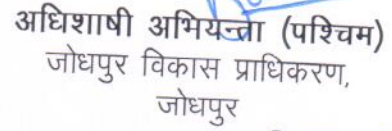 अधिशाषी अभियन्ता (पश्चिम)
जोधपुर विकास प्राधिकरण,
जोधपुर